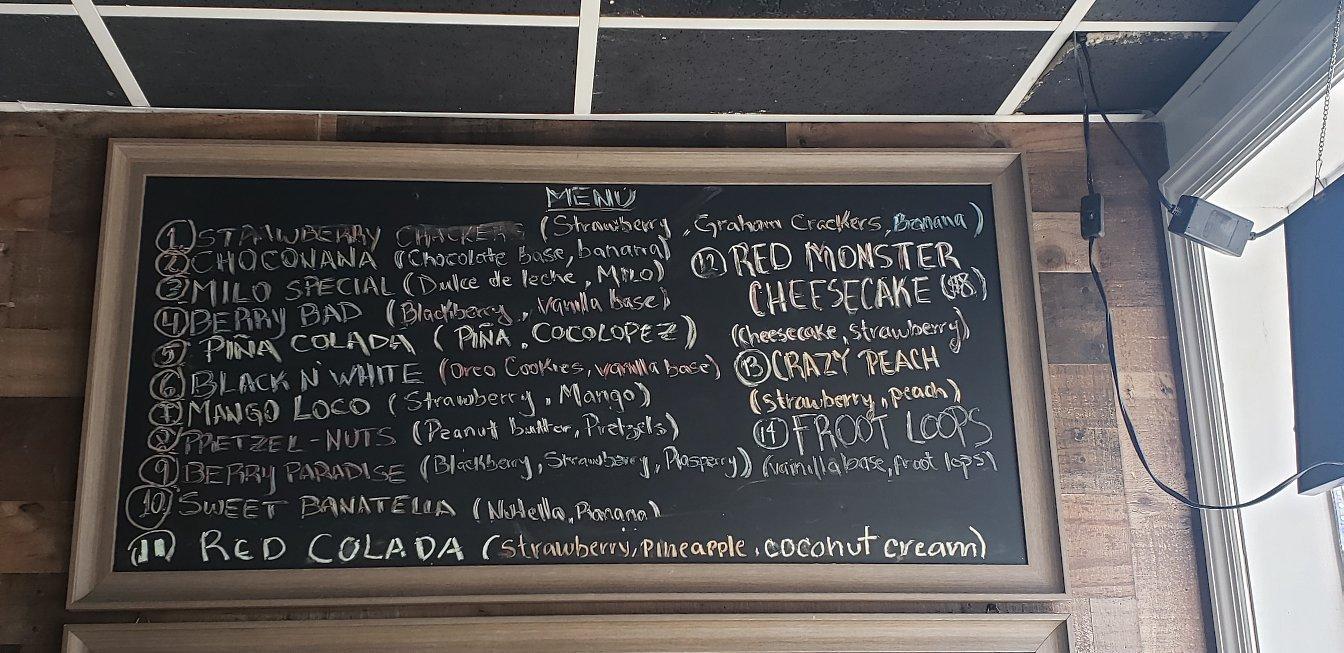 MENÚ
1. STRAWBERRY CRACKERS (Strawberry, Graham Crackers, Banana)
2 CHOCONANA (Chocolate base, banana)
3 MILO SPECIAL (Dulce de leche, MILO)
4 BERRY BAD (Blackberry, vanilla base)
5 PIÑA COLADA (PIÑA, COCOLOPEZ)
6 BLACK N WHITE (Oreo Cookies, vanilla base)
7 MANGO LOCO (Strawberry, Mango)
8 PRETZEL-NUTS (Peanut butter, Pretzels)
9 BERRY PARADISE (Blackberry, Strawberry, Rasperry)
10 SWEET BANATELLA (Nutella, Banana)
11 RED COLADA (strawberry, pineapple, coconut cream)
12 RED MONSTER
CHEESECAKE ($8)
(Cheesecake, strawberry)
13 CRAZY PEACH
(strawberry, peach)
14 FROOT LOOPS
(vainilla base, froot lops)